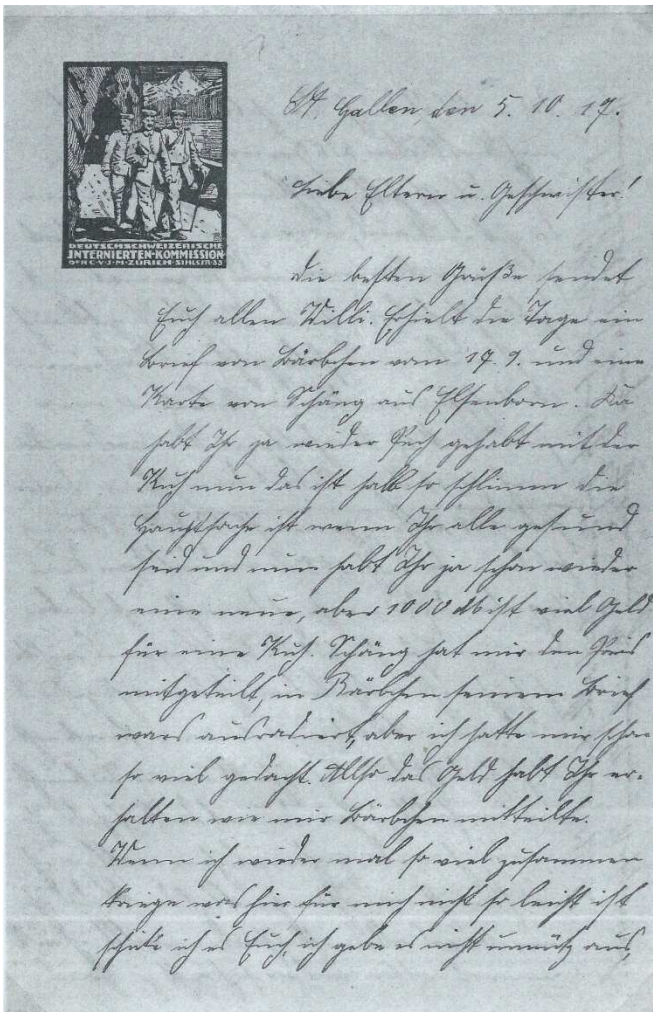 DEUTSCHSCHWEIZERISCHE
INTERNIERTEN-KOMMISSION
DER C.V.J.M. ZÜRICH-SIHLSTR.33
St. Gallen, den 5. 10. 17.
Liebe Eltern u. Geschwister!
Die besten Grüße sendet
Euch allen Willi. Erhielt die Tage ein
Brief von Bärbchen vom 17. 9. und eine
Karte von Schäng aus Elsenborn. Da
habt Ihr ja wieder Pech gehabt mit der
Kuh nun das ist halb so schlimm die
Hauptsache ist wenn Ihr alle gesund
seid und nun habt Ihr ja schon wieder
eine neue, aber 1000 M ist viel Geld
für eine Kuh. Schäng hat mir den Preis
mitgeteilt, in Bärbchen seinem Brief
wars ausradiert, aber ich hatte mir schon
so viel gedacht. Allso das Geld habt Ihr er-
halten wie mir Bärbchen mitteilte.
Wenn ich wieder mal so viel zusammen
kriege was hier für mich nicht so leicht ist
schike ich es Euch, ich gebe es nicht unnütz aus,